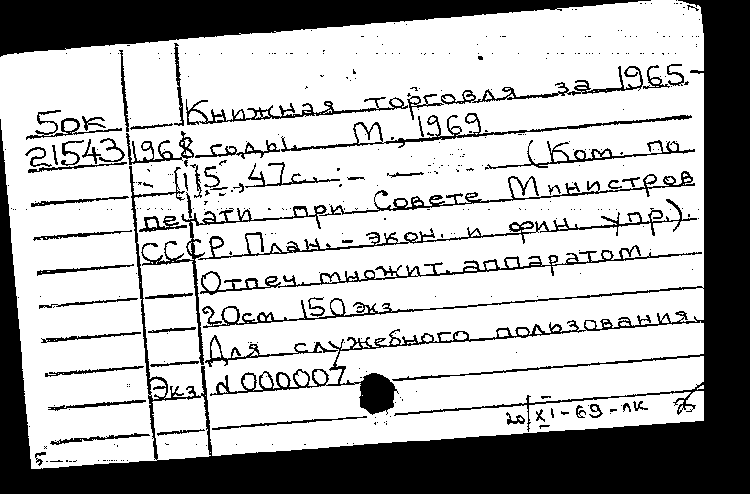 Книжная торговля за 1965-
50к
21543 1968 годы. М., 1969.
- [1]5, 47с. - (Ком. по
печати при Совете Министров
СССР. План.-экон. и фин. упр.).
Отпеч. множит. аппаратом.
20см. 150 экз.
Для служебного пользования.
Экз. N 000007.
20/XI-69-пк
5